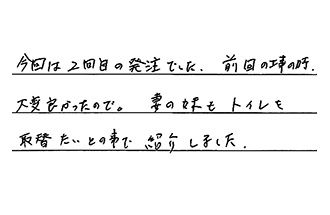 今回は2回目の発注でした. 前回の工事の時.
大変良かったので。 妻の妹も トイレを
取替たいとの事で 紹介しました.